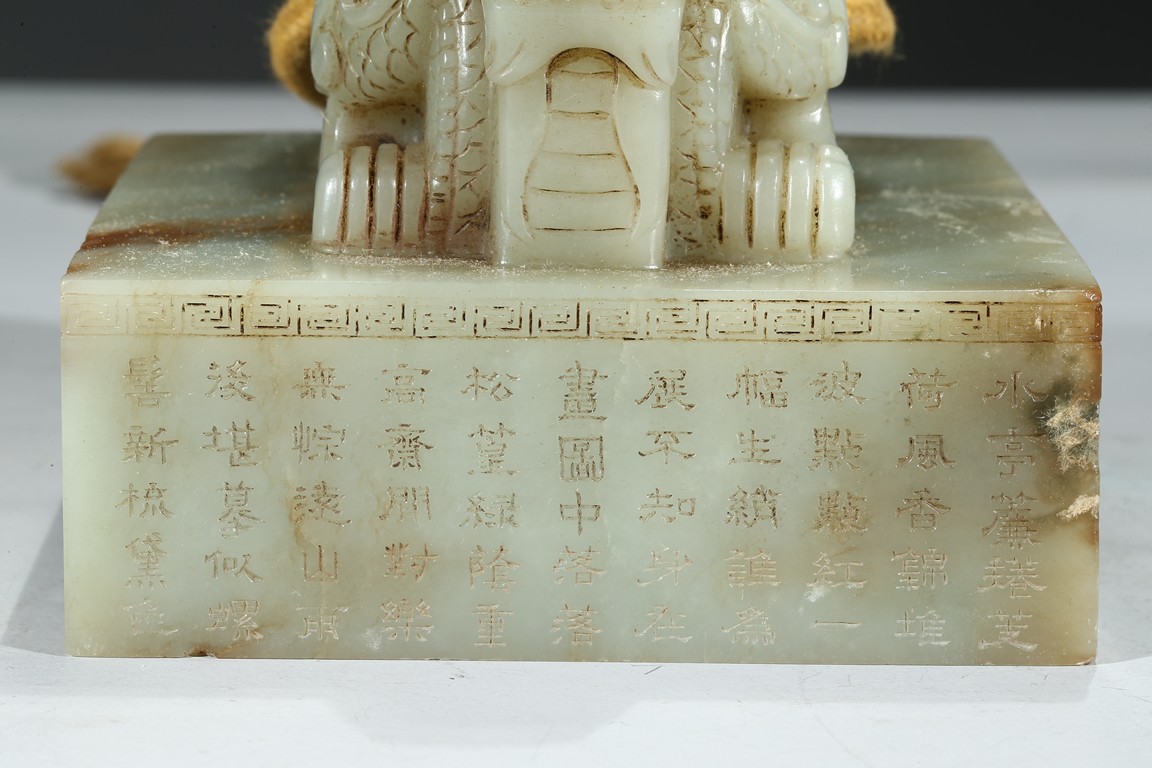 水亭簾捲芰
荷風香錦堆
波點點紅一
幅生綃誰為
展不知身在
畫圖中落落
松篁緑陰重
高齋閒對樂
無悰遠山雨
後堪摹似螺
髻新梳黛